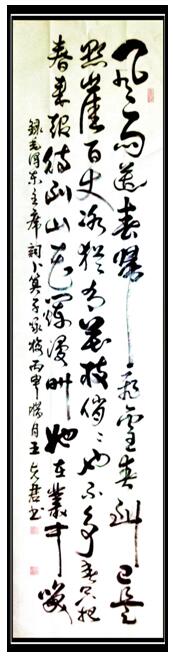 风雨送春歸飛雪迎春到已是
懸崖百丈冰犹有花枝俏俏也不争春只把
春来报待到山花爛漫时她在叢中笑
録毛澤東主席詞卜算子詠梅丙申臘月王